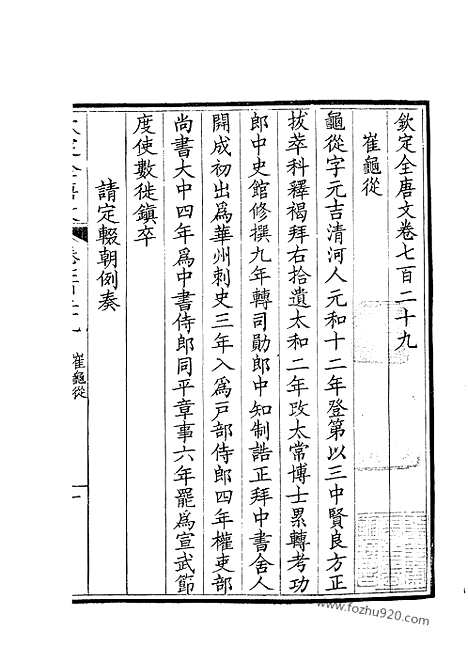 欽定全唐文卷七百二十九
崔龜從
龜從字元吉清河人元和十二年登第以三中賢良方正
拔萃科釋褐拜右拾遺太和二年改太常博士累轉考功
郎中史館修撰九年轉司勛郎中知制誥正拜中書舍人
開成初出爲華州刺史三年入爲戶部侍郎四年權吏部
尚書大中四年爲中書侍郎同平章事六年罷爲宣武節
度使數徙鎮卒
請定輟朝例奏
崔龜從
一
www.fozhu920.com